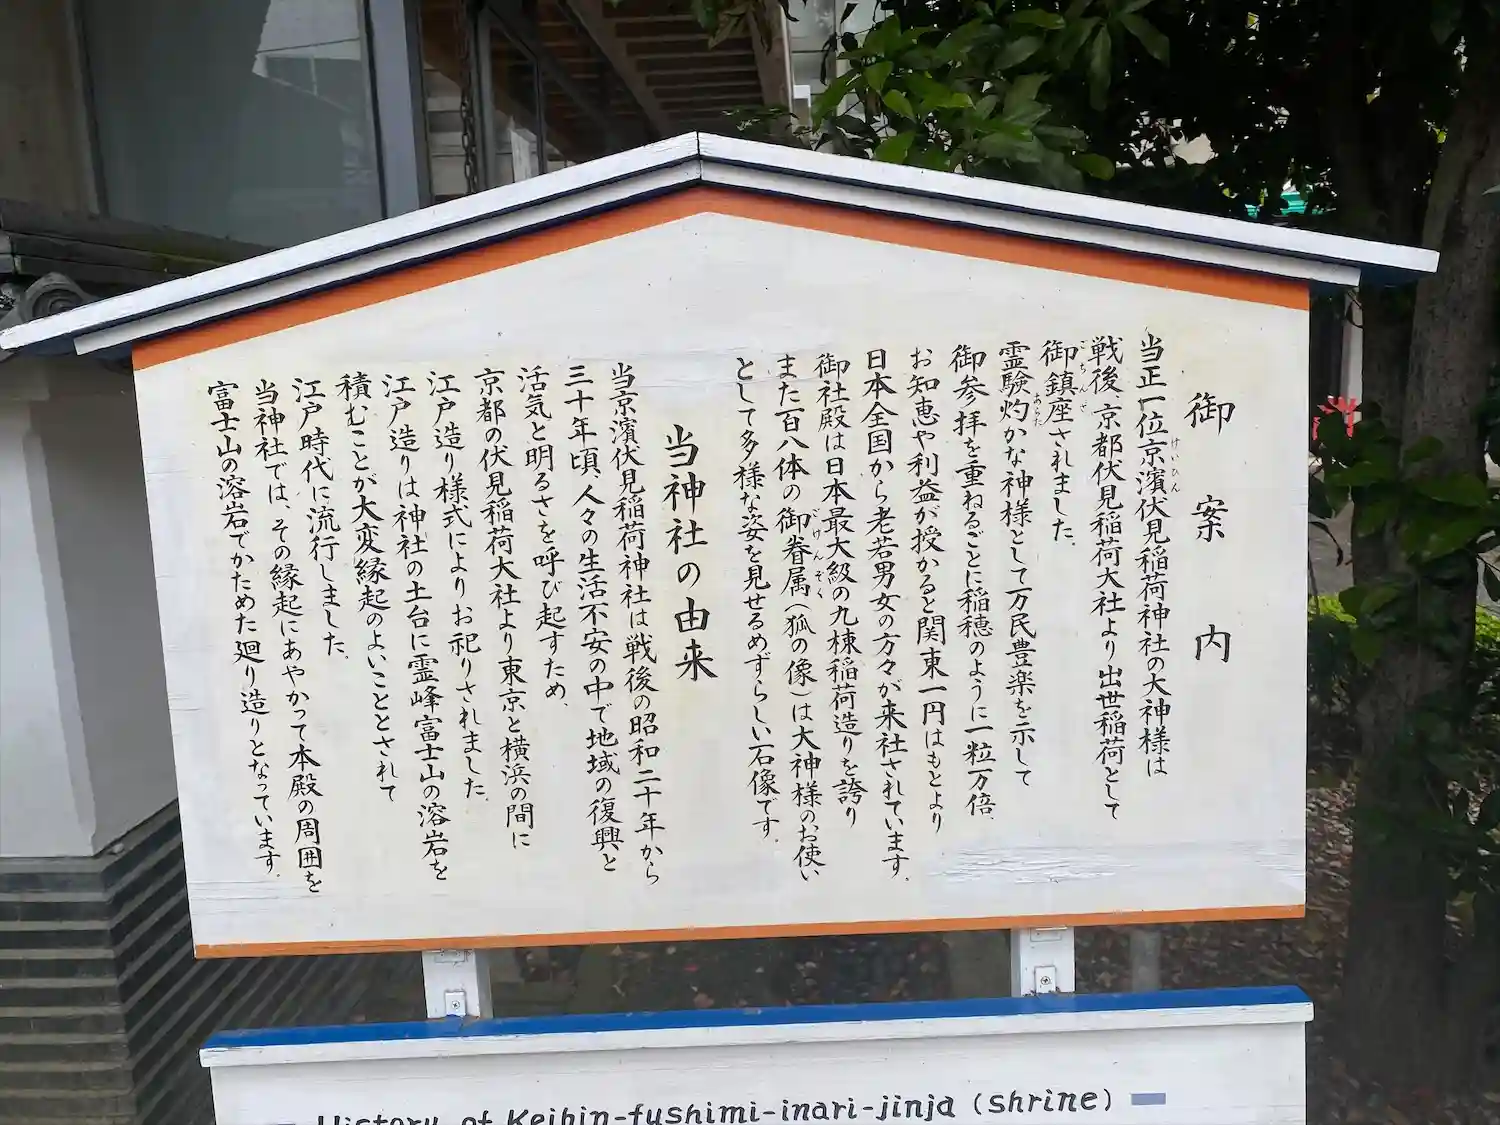 御案内
当正一位京濱伏見稲荷神社の大神様は
けいひん
戦後、京都伏見稲荷大社より出世稲荷として
御鎮座されました。
ごちんざ
霊験灼かな神様として万民豊楽を示して
あらた
御参拝を重ねるごとに稲穂のように一粒万倍、
お知恵や利益が授かると関東一円はもとより
日本全国から老若男女の方々が来社されています。
御社殿は日本最大級の九棟稲荷造りを誇り
また百八体の御眷属(狐の像)は大神様のお使い
ごけんぞく
として多様な姿を見せるめずらしい石像です。
当神社の由来
当京濱伏見稲荷神社は戦後の昭和二十年から
三十年頃、人々の生活不安の中で地域の復興と
活気と明るさを呼び起すため、
京都の伏見稲荷大社より東京と横浜の間に
江戸造り様式によりお祀りされました。
江戸造りは神社の土台に霊峰富士山の溶岩を
積むことが大変縁起のよいこととされて
江戸時代に流行しました。
当神社では、その縁起にあやかって本殿の周囲を
富士山の溶岩でかためた廻り造りとなっています。
History of Keihin-fushimi-inari-jinja (shrine)